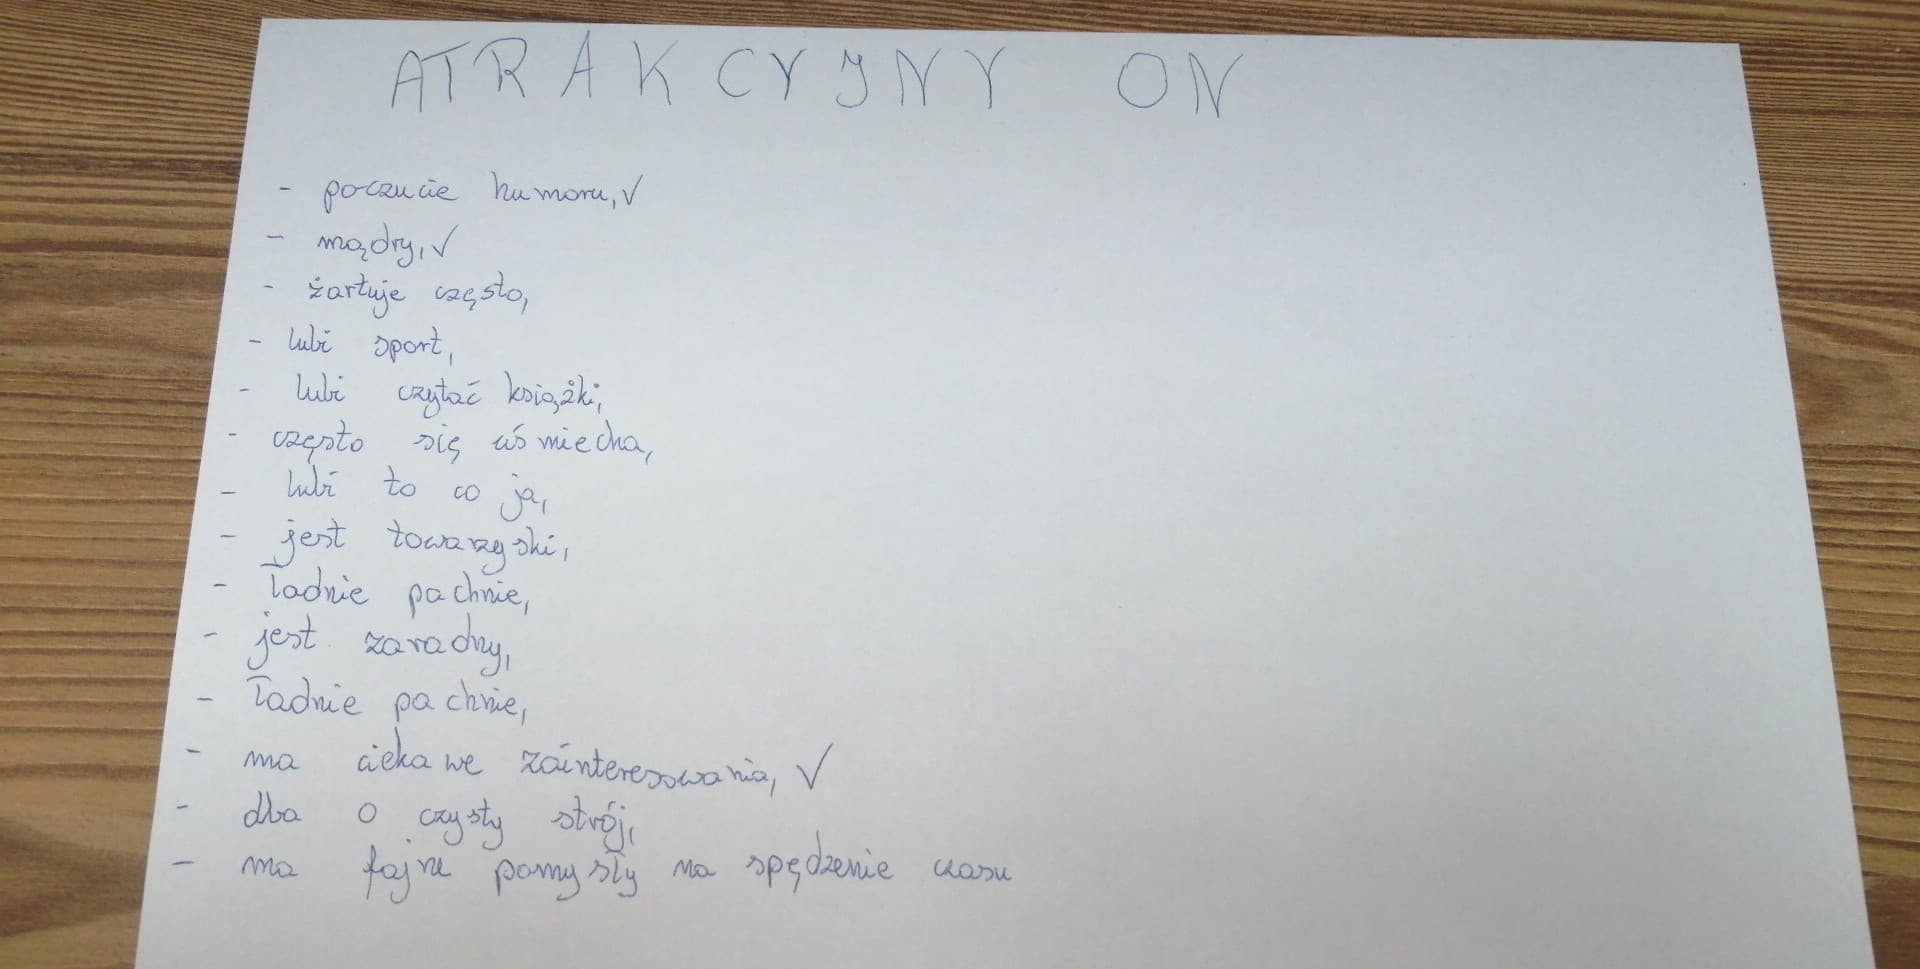 ATRAKCYJNY ON
- poczucie humoru, ✓
- mądry, ✓
- żartuje często,
- lubi sport,
- lubi czytać książki,
- często się uśmiecha,
- lubi to co ja,
- jest towarzyski,
- ładnie pachnie,
- jest zaradny,
- ładnie pachnie,
- ma ciekawe zainteresowania, ✓
- dba o czysty strój,
- ma fajne pomysły na spędzenie czasu